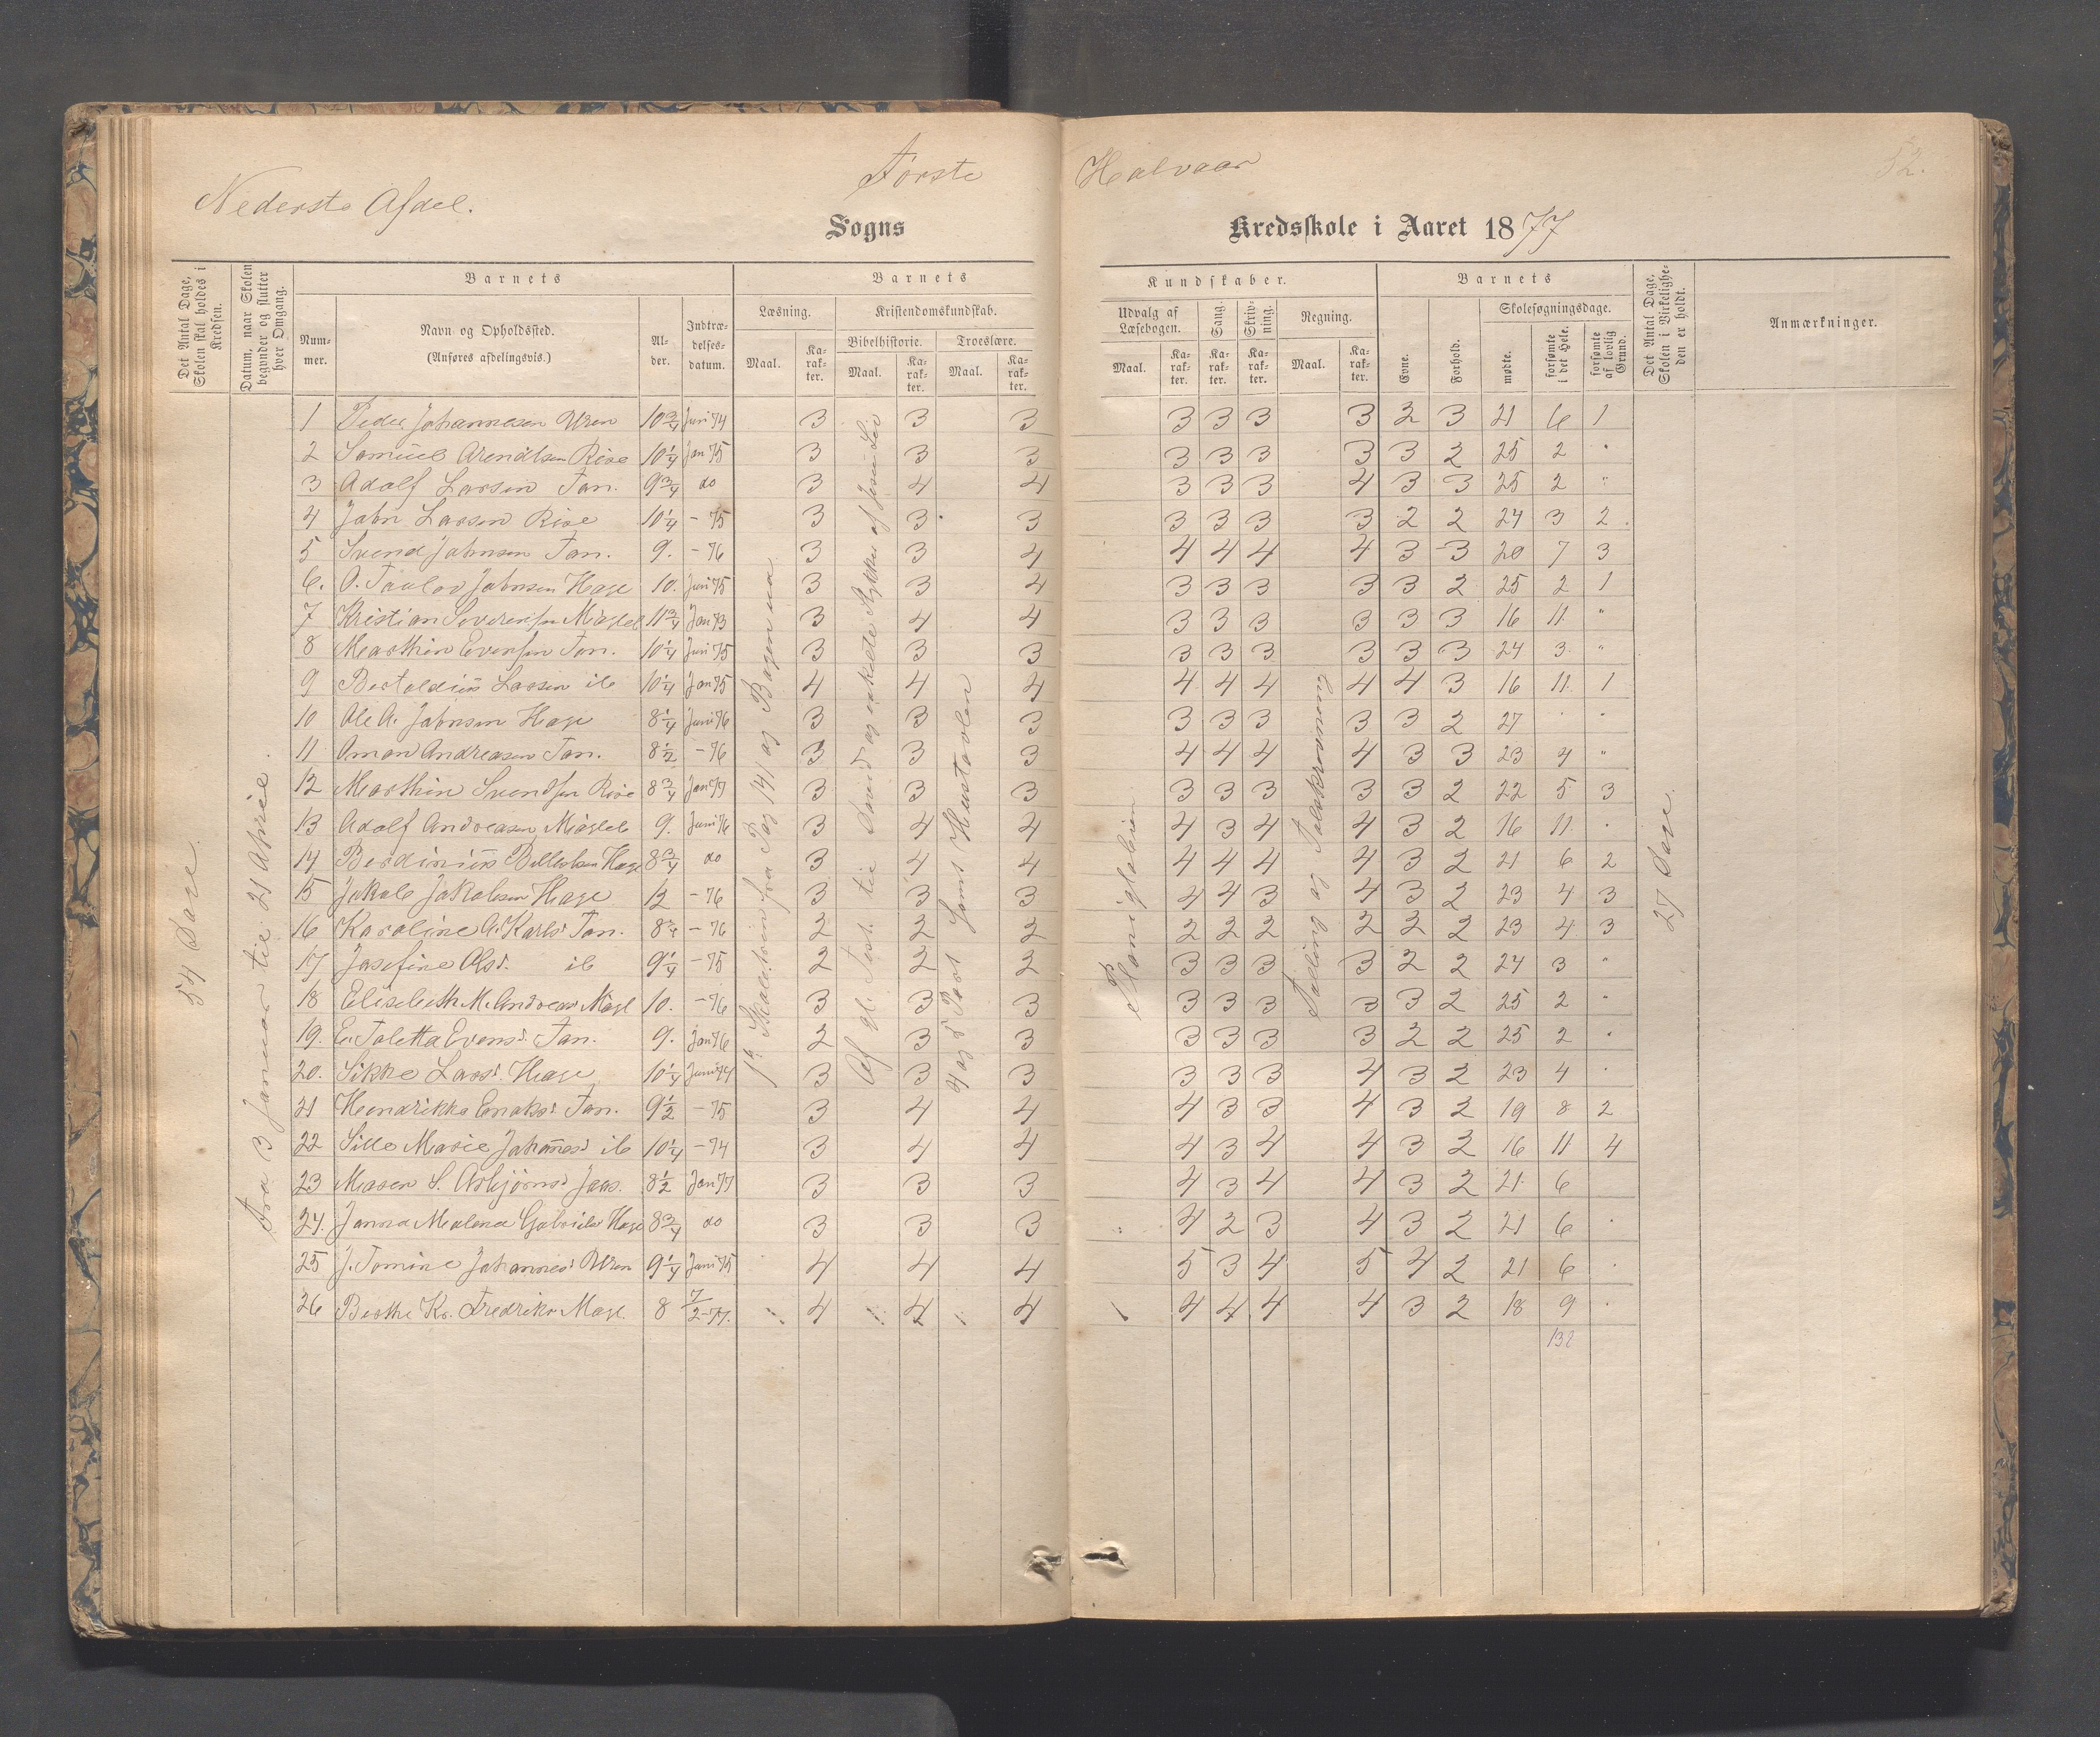 Første Halvaar 52.
Nederste Afdel.
Sogns Kredsskole i Aaret 1877
Det Antal Dage, Skolen skal holdes i Kredsen.
Datum, naar Skolen begynder og slutter hver Omgang.
Barnets
Nummer.
Navn og Opholdssted.
(Anføres afdelingsvis.)
Alder.
Indtrædelsesdatum.
Barnets Kundskaber.
Læsning.
Maal. Karakter.
Kristendomskundskab.
Bibelhistorie.
Maal. Karakter.
Troeslære.
Maal. Karakter.
Udvalg af Læsebogen.
Maal. Karakter.
Sang. Karakter.
Skrivning. Karakter.
Regning.
Maal. Karakter.
Barnets
Evne.
Forhold.
Skolesøgningsdage.
mødte.
forsømte i det Hele.
forsømte af lovlig Grund.
Det Antal Dage, Skolen i Virkeligheden er holdt.
Anmærkninger.
54 Dage.
Fra 3 Januar til 21 April.
af Jesu Liv
4 og 5 Part samt Hustavlen
Tælling og Talskrivning
27 Dage.
1 Peder Johannesen Uren 10 3/4 Juni 74 3 3 3 3 3 3 3 2 3 21 6 1
2 Samuel Arendtsen Rise 10 1/4 Jan 75 3 3 3 3 3 3 3 3 2 25 2 "
3 Adolf Larsen Tan. 9 3/4 do 3 4 4 3 3 3 4 3 3 25 2 "
4 John Larsen Rise 10 1/4 - 75 3 3 3 3 3 3 3 2 2 24 3 2
5 Svend Johnsen Tan. 9. - 76 3 3 4 4 4 4 4 3 3 20 7 3
6. O. Taulov Johnsen Hage 10. Juni 75 3 3 4 3 3 3 3 3 2 25 2 1
7 Kristian Severinsen 11 3/4 Jan 73 3 4 4 3 3 3 3 3 3 16 11 "
8 Marthin Evensen Tan. 10 1/4 Juni 75 3 3 3 3 3 3 3 3 3 24 3 "
9 Larsen ib 10 1/4 Jan 75 4 4 4 4 4 4 4 4 3 16 11 1
10 Ole A. Johnsen Hage 8 1/4 Juni 76 3 3 3 3 3 3 3 3 2 27 " "
11 Oman Andreasen Tan. 8 1/2 - 76 3 3 3 4 4 4 4 3 3 23 4 "
12 Marthin Svendsen Rise 8 3/4 Jan 77 3 3 3 3 3 3 3 3 2 22 5 3
13 Adolf Andreasen 9. Juni 76 3 4 4 4 3 4 4 3 2 16 11 "
14 Hage 8 3/4 do 3 4 4 4 4 4 4 3 2 21 6 2
15 Jakob Jakobsen Hage 12 - 76 3 3 3 4 4 3 4 3 2 23 4 3
16 Karoline A. Karlsd. Tan. 8 3/4 - 76 2 2 2 2 2 2 2 2 2 23 4 3
17 Josefine Olsd. ib 9 1/4 - 75 2 2 2 3 3 3 3 2 2 24 3 "
18 Elisabeth M. Andreasd. 10. - 76 3 3 3 3 3 3 3 3 2 25 2 "
19. E. Toletta Evensd. Tan. 9. Jan 76 2 3 3 3 3 3 3 2 2 25 2 "
20. Sikke Larsd. Hage 10 1/4 Juni 74 3 3 3 3 3 3 4 3 2 23 4 "
21 Hendrikka Enoksd. Tan. 9 1/2 - 75 3 4 4 4 3 3 4 3 2 19 8 2
22 Sille Marie Johannesd. ib 10 1/4 - 74 3 4 4 4 3 4 4 3 2 16 11 4
23 Maren S. Asbjørnsd. Jaas. 8 1/2 Jan 77 3 3 3 4 3 4 4 3 2 21 6
24. Janna Malena Gabrielsd. Hage 8 3/4 do 3 3 3 4 2 3 4 3 2 21 6 "
25 J. Tomine Johannesd. Uren 9 1/4 Juni 75 4 4 4 5 3 4 5 4 2 21 6 "
26 Berthe Kr. Fredriksd. 8 7/2-77. 4 4 4 4 4 4 4 3 2 18 9 "
132